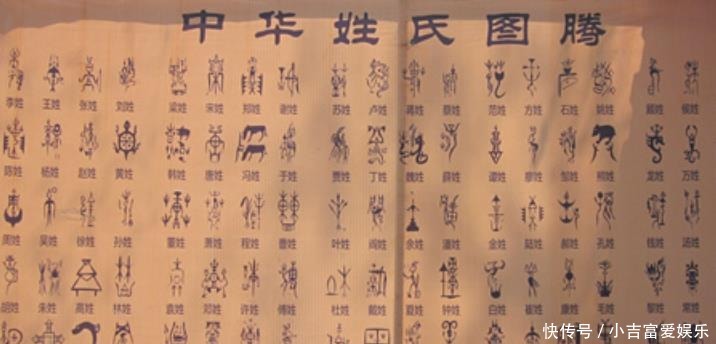 中华姓氏图腾
李姓 王姓 张姓 刘姓 梁姓 宋姓 郑姓 谢姓 苏姓 卢姓 蒋姓 蔡姓 范姓 方姓 石姓 姚姓 顾姓 侯姓
陈姓 杨姓 赵姓 黄姓 韩姓 唐姓 冯姓 于姓 贾姓 丁姓 魏姓 薛姓 谭姓 廖姓 邹姓 熊姓 龙姓 万姓
周姓 吴姓 徐姓 孙姓 董姓 萧姓 程姓 曹姓 叶姓 阎姓 余姓 潘姓 金姓 陆姓 郝姓 孔姓 钱姓 汤姓
胡姓 朱姓 高姓 林姓 袁姓 邓姓 许姓 傅姓 杜姓 戴姓 夏姓 钟姓 白姓 崔姓 康姓 毛姓 黎姓 常姓
快传号/小吉富爱娱乐